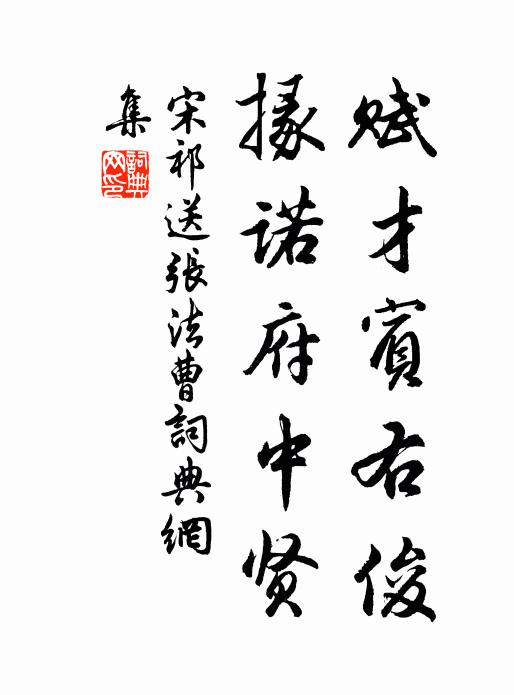 赋才賓右俊
掾诺府中贤
宋祁送張法曹詞典網
集
詞典
网印